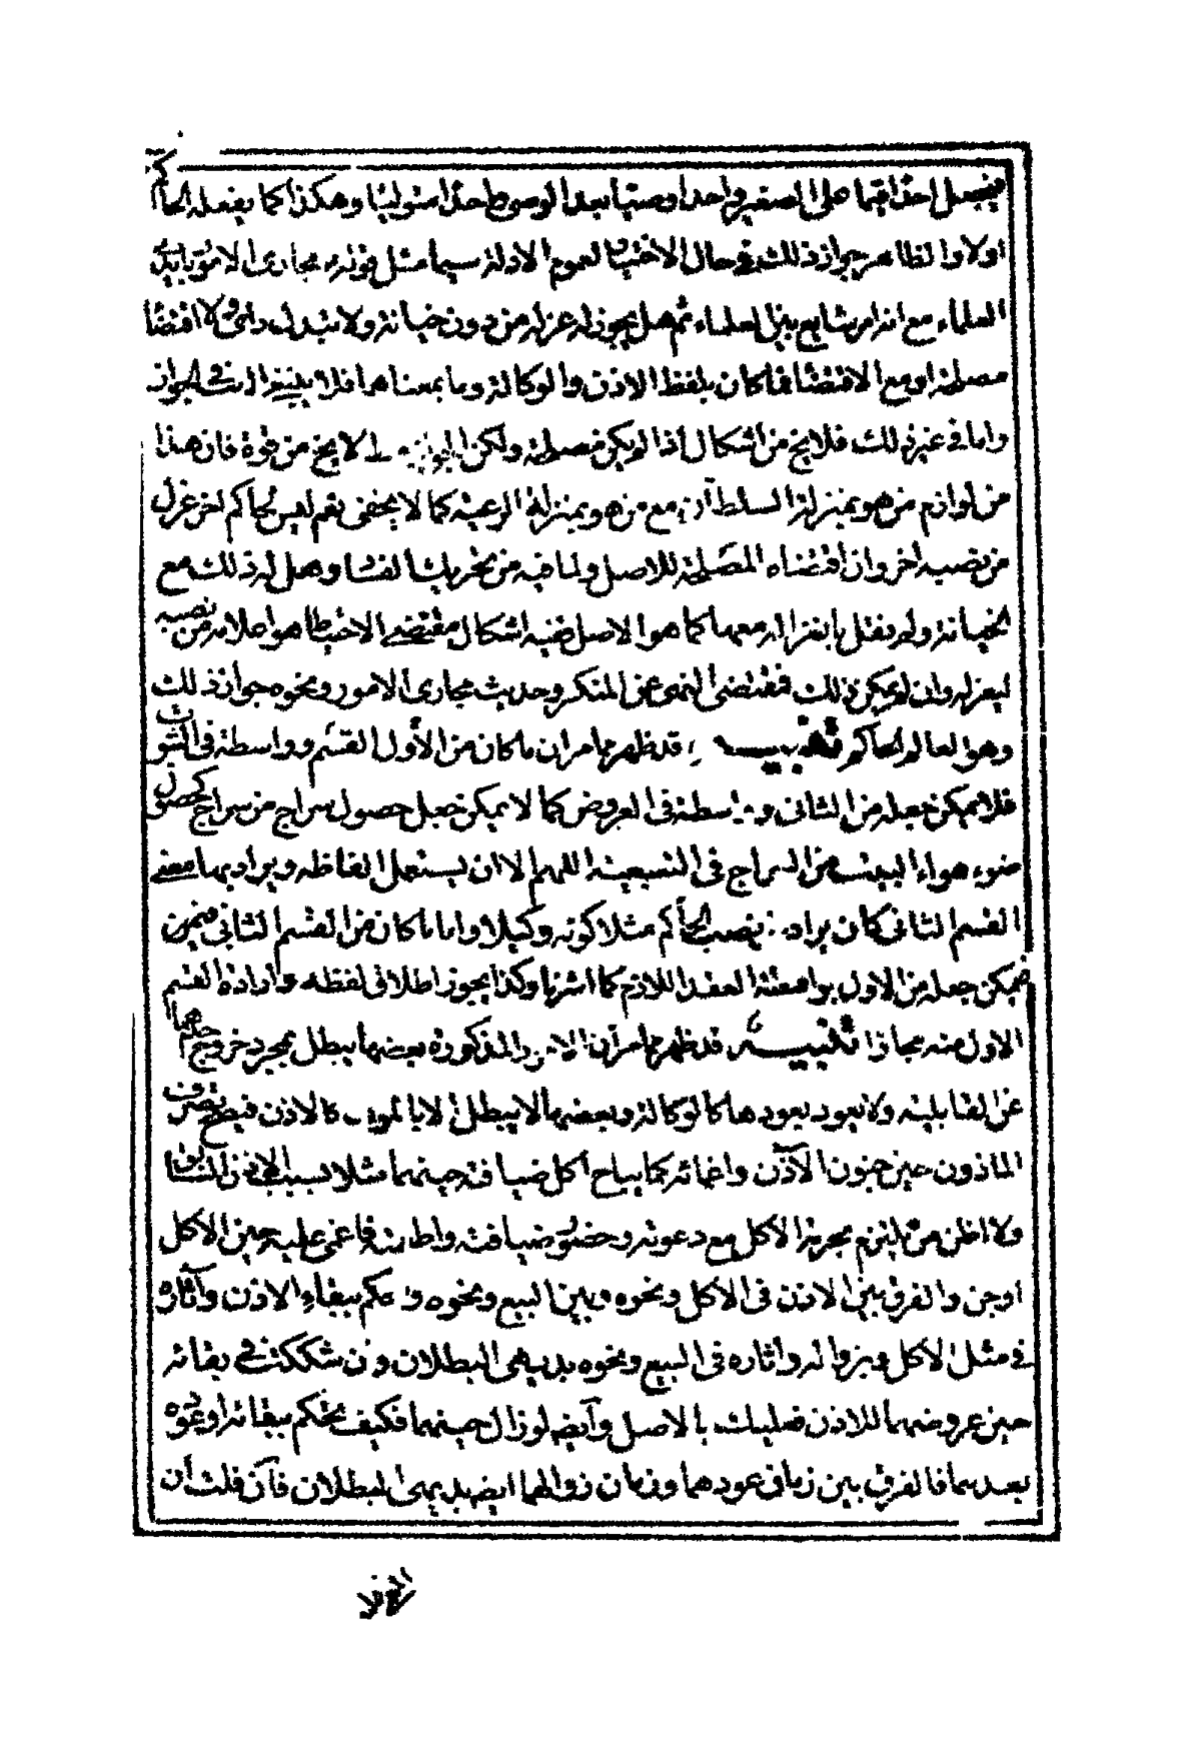 فيجعل احدا قيما على الصغير واحدا وصيا بعد الوصى واحدا متوليا وهكذا كما يفعله الحاكم
اولا والظاهر جواز ذلك فى حال الاختيار لعموم الادلة سيما مثل قوله مجارى الامور بايدى
العلماء مع انه امر شايع بين العلماء ثم هل يجوز له عزله من دون خيانة ولا تبدل راى ولا اقتضاء
مصلحة او مع الاقتضاء فما كان بلفظ الاذن والوكالة وما بمعناهما فلا ينبغى الشك فى الجواز
واما فى غير ذلك فلا يخ من اشكال اذا لم يكن مصلحة ولكن الجواز لا يخ من قوة فان هذا
من لوازم من هو بمنزلة السلطان مع من هو بمنزلة الرعية كما لا يخفى نعم ليس لحاكم اخر عزل
من نصبه اخر وان اقتضاه المصلحة للاصل ولما فيه من تحريك الفساد وهل له ذلك مع
الخيانة ولم نقل بانعزاله معها كما هو الاصل ففيه اشكال مقتضى الاحتياط هو اعلام من نصبه
ليعزله وان لم يمكن ذلك فمقتضى النهى عن المنكر وحديث مجارى الامور ونحوه جواز ذلك
وهو العالم الحاكم تنبيه قد ظهر مما مر ان ما كان من الأول القسم وواسطة فى الثبوت
فلا يمكن جعله من الثانى و واسطة فى العروض كما لا يمكن جعل حصول سراج من سراج كحصول
ضوء هواء البيت من السراج فى التبعية اللهم الا ان يستعمل الفاظه ويراد بها معنى
القسم الثانى كان يراد بنصب الحاكم مثلا كونه وكيلا واما ما كان من القسم الثانى فمن
فيمكن جعله من الاول بواسطة العقد اللازم كما اشرنا وكذا يجوز اطلاق لفظه وارادة القسم
الاول منه مجازا تنبيه قد ظهر مما مر ان الامور المذكورة بعضها يبطل بمجرد خروج الحاكم
عن القابلية ولا يعود بعودها كالوكالة وبعضها لا يبطل الا بالموت كالاذن فيصح تصرف
الماذون حين جنون الآذن واغمائه كما يباح اكل ضيافة حينهما مثلا بسبب الاذن السابق
ولا اظن من يلتزم بحرمة الاكل مع دعوته وحضور ضيافته واطمانه فاغمى عليه حين الاكل
اوجن والفرق بين الاذن فى الاكل ونحوه وبين البيع ونحوه والحكم ببقاء الاذن وآثاره
فى مثل الاكل وبزواله واثاره فى البيع ونحوه بديهى البطلان وان شككت فى بقائه
حين عروضهما للاذن فعليك بالاصل وآيضه لو زال حينهما فكيف نحكم ببقائه او عوده
بعدهما فالفرق بين زمان عودهما وزمان زوالهما ايضه بديهى البطلان فآن قلت ان